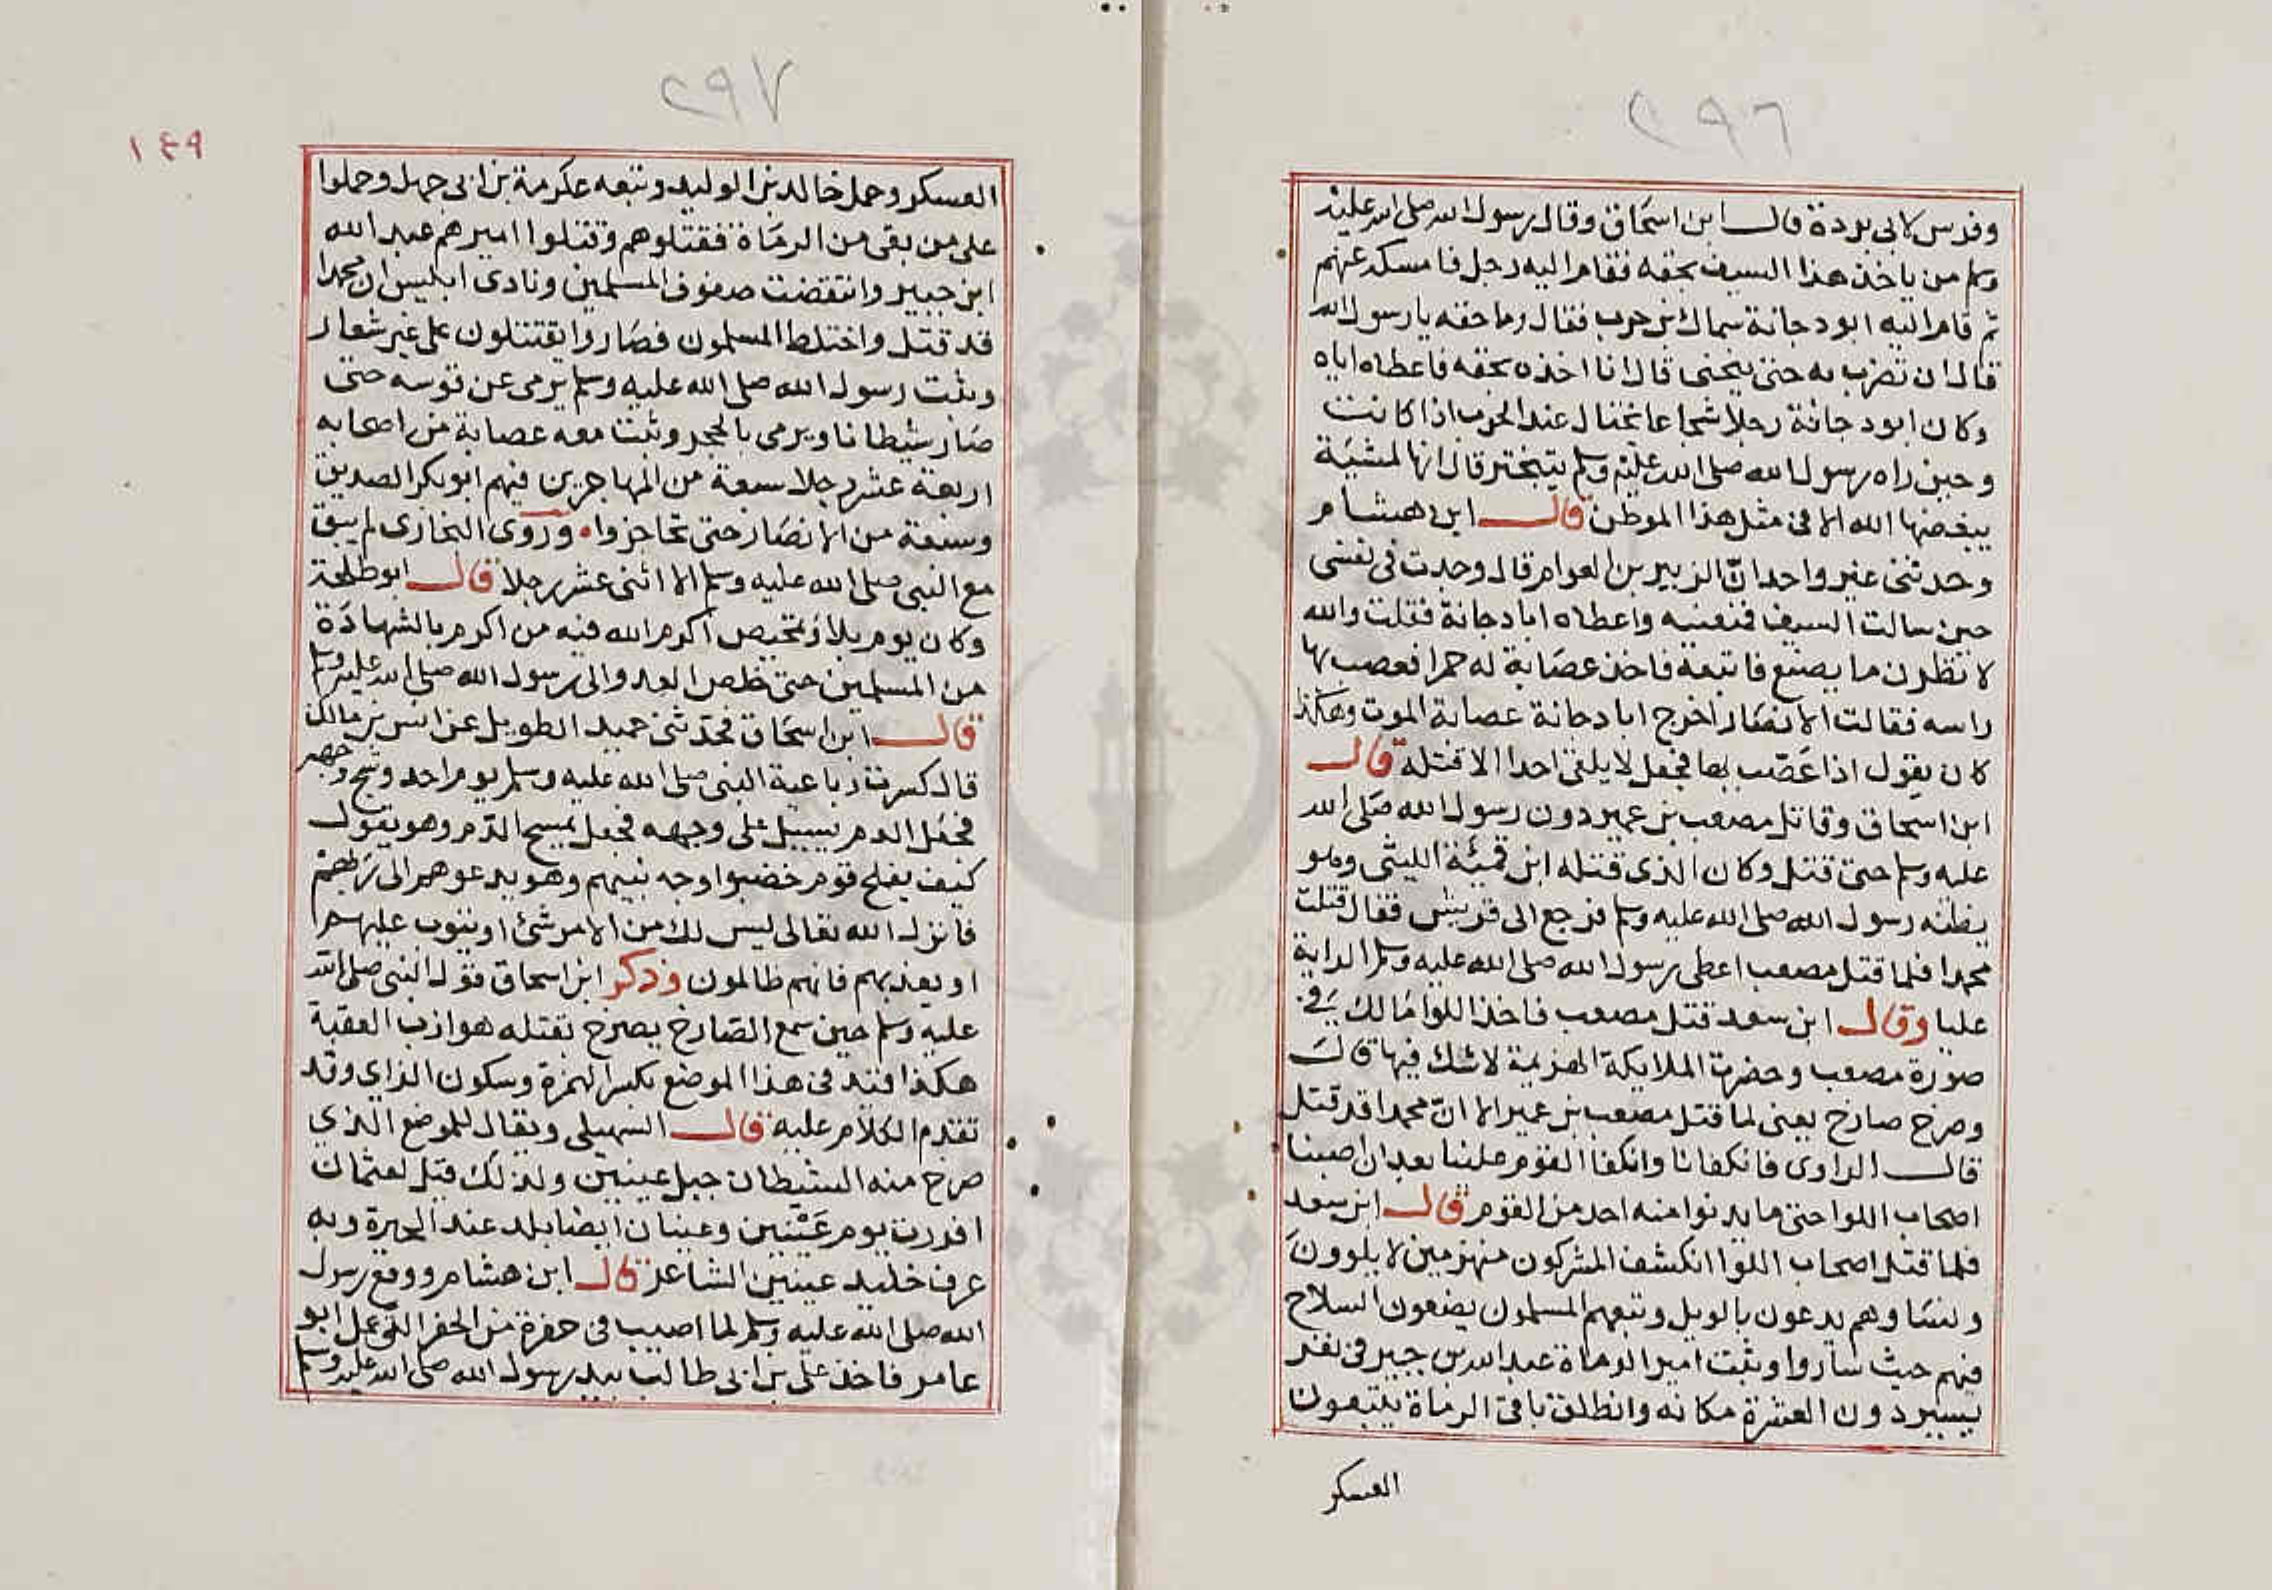 ٢٩٦
وفرس لابي بردة قال ابن اسحاق وقال رسول الله صلى الله عليه
وسلم من ياخذ هذا السيف بحقه فقام اليه رجل فامسكه عنهم
ثم قام اليه ابو دجانة سماك بن حرب فقال وما حقه يا رسول الله
قال ان تضرب به حتى ينحنى قال انا اخذه بحقه فاعطاه اياه
وكان ابو دجانة رجلا شجاعا يختال عند الحرب اذا كانت
وحين راه رسول الله صلى الله عليه وسلم يتبختر قال انها لمشية
يبغضها الله الا فى مثل هذا الموطن قال ابن هشام
وحدثنى غير واحد انّ الزبير بن العوام قال وجدت فى نفسى
حين سالت السيف فمنعنيه واعطاه ابا دجانة فقلت والله
لانظرن ما يصنع فاتبعته فاخذ عصابة له حمرا فعصب بها
راسه فقالت الانصار اخرج ابا دجانة عصابة الموت وهكذا
كان يقول اذا عصّب بها فجعل لا يلقى احدا الا قتله قال
ابن اسحاق وقاتل مصعب بن عمير دون رسول الله صلى الله
عليه وسلم حتى قتل وكان الذى قتله ابن قمئة الليثى وهو
يظنه رسول الله صلى الله عليه وسلم فرجع الى قريش فقال قتلت
محمدا فلما قتل مصعب اعطى رسول الله صلى الله عليه وسلم الراية
عليا وقال ابن سعد قتل مصعب فاخذ اللوا مالك فى
صورة مصعب وحضرت الملايكة الهزيمة لا شك فيها قال
وصرخ صارخ يعنى لما قتل مصعب بن عمير الا انّ محمدا قد قتل
قال الراوى فانكفانا وانكفا القوم علينا بعد ان اصبنا
اصحاب اللوا حتى ما يدنوا منه احد من القوم قال ابن سعد
فلما قتل اصحاب اللوا انكشف المشركون منهزمين لا يلوون
ونساوهم يدعون بالويل وتبعهم المسلمون يضعون السلاح
فيهم حيث ساروا وثبت امير الرماة عبد الله بن جبير فى نفر
يسير دون العشرة مكانه وانطلق باقى الرماة يتبعون
العسكر
٢٩٧
١٤٩
العسكر وحمل خالد بن الوليد وتبعه عكرمة بن ابى جهل وحملوا
على من بقى من الرماة فقتلوهم وقتلوا اميرهم عبد الله
ابن جبير وانتقضت صفوف المسلمين ونادى ابليس ان محمدا
قد قتل واختلط المسلمون فصاروا يقتتلون على غير شعار
وثبت رسول الله صلى الله عليه وسلم يرمى عن قوسه حتى
صار شيطانا ويرمى بالحجر وثبت معه عصابة من اصحابه
اربعة عشر رجلا سبعة من المهاجرين فيهم ابو بكر الصديق
وسبعة من الانصار حتى تحاجزوا وروى البخارى لم يبق
مع النبى صلى الله عليه وسلم الا اثنى عشر رجلا قال ابو طلحة
وكان يوم بلاء وتمحيص اكرم الله فيه من اكرم بالشهادة
من المسلمين حتى خلص العدو الى رسول الله صلى الله عليه وسلم
قال ابن اسحاق فحدثنى حميد الطويل عن انس بن مالك
قال كسرت رباعية النبى صلى الله عليه وسلم يوم احد وشج وجهه
فجعل الدم يسيل على وجهه فجعل يمسح الدّم وهو يقول
كيف يفلح قوم خضبوا وجه نبيهم وهو يدعوهم الى ربهم
فانزل الله تعالى ليس لك من الامر شئ او يتوب عليهم
او يعذبهم فانهم ظالمون وذكر ابن اسحاق قول النبى صلى الله
عليه وسلم حين سمع الصّارخ يصرخ بقتله هو ازب العقبة
هكذا قيد فى هذا الموضع بكسر الهمزة وسكون الزاى وقد
تقدم الكلام عليه قال السهيلى ويقال للموضع الذي
صرخ منه الشيطان جبل عينين ولذلك قيل لعثمان
افررت يوم عَيْنين وعينان ايضا بلد عند الحيرة وبه
عرف خليد عينين الشاعر قال ابن هشام ووقع رسول
الله صلى الله عليه وسلم لما اصيب فى حفرة من الحفر التى عمل ابو
عامر فاخذ على بن ابى طالب بيد رسول الله صلى الله عليه وسلم